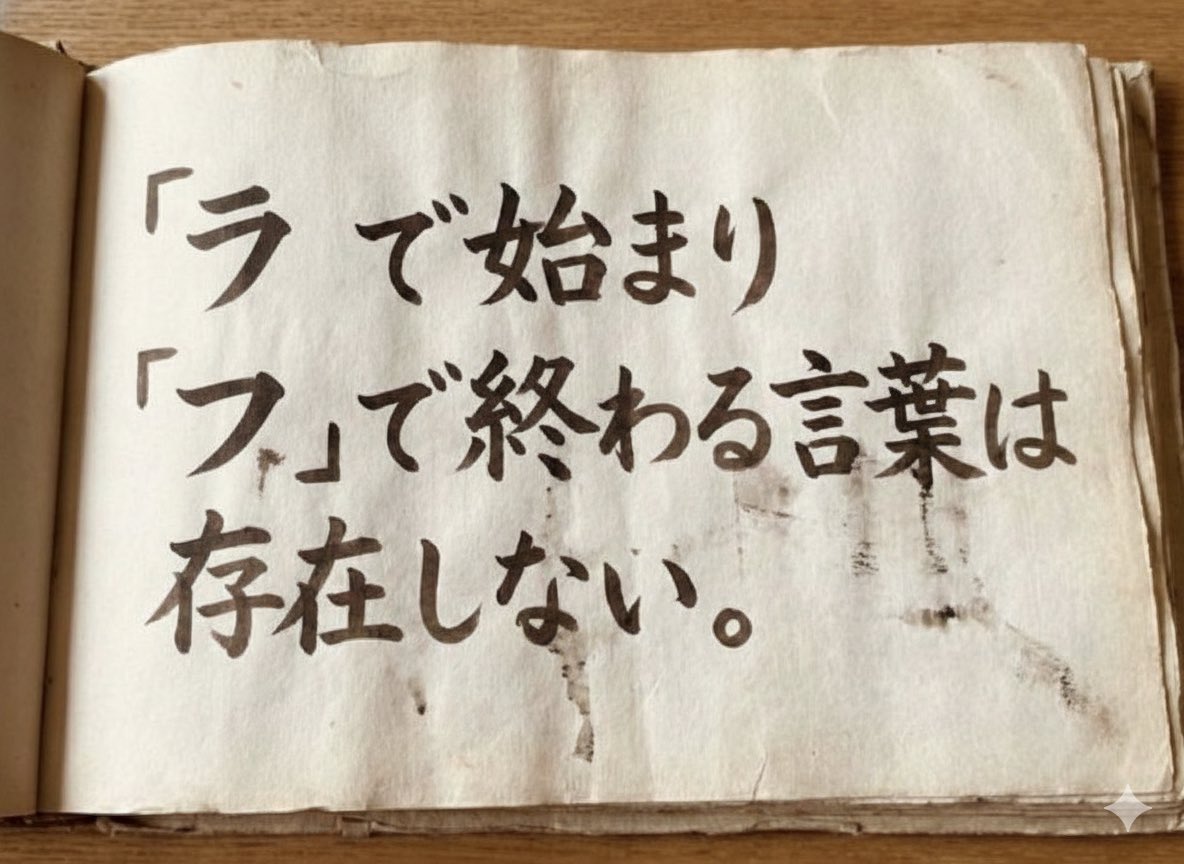 「ラ で始まり
「フ」で終わる言葉は
存在しない。